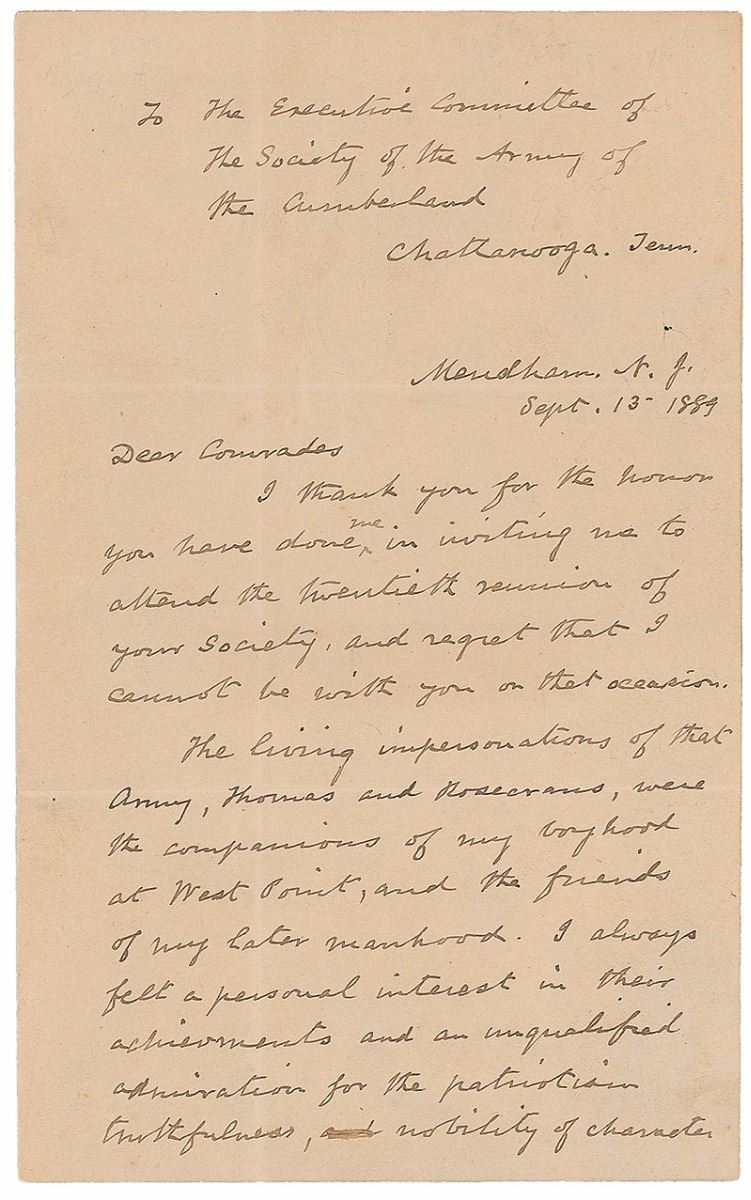 To The Executive Committee of
the Society of the Army of
the Cumberland
Chattanooga. Tenn.
Mendham. N. J.
Sept. 15 1889
Dear Comrades
I thank you for the honor
you have done, me in inviting me to
attend the twentieth reunion of
your Society, and regret that I
cannot be with you on that occasion.
The living impersonations of that
Army, Thomas and Rosecrans, were
the companions of my boyhood
at West Point, and the friends
of my later manhood. I always
felt a personal interest in their
achievments and an unqualified
admiration for the patriotism
truthfulness, and nobility of character